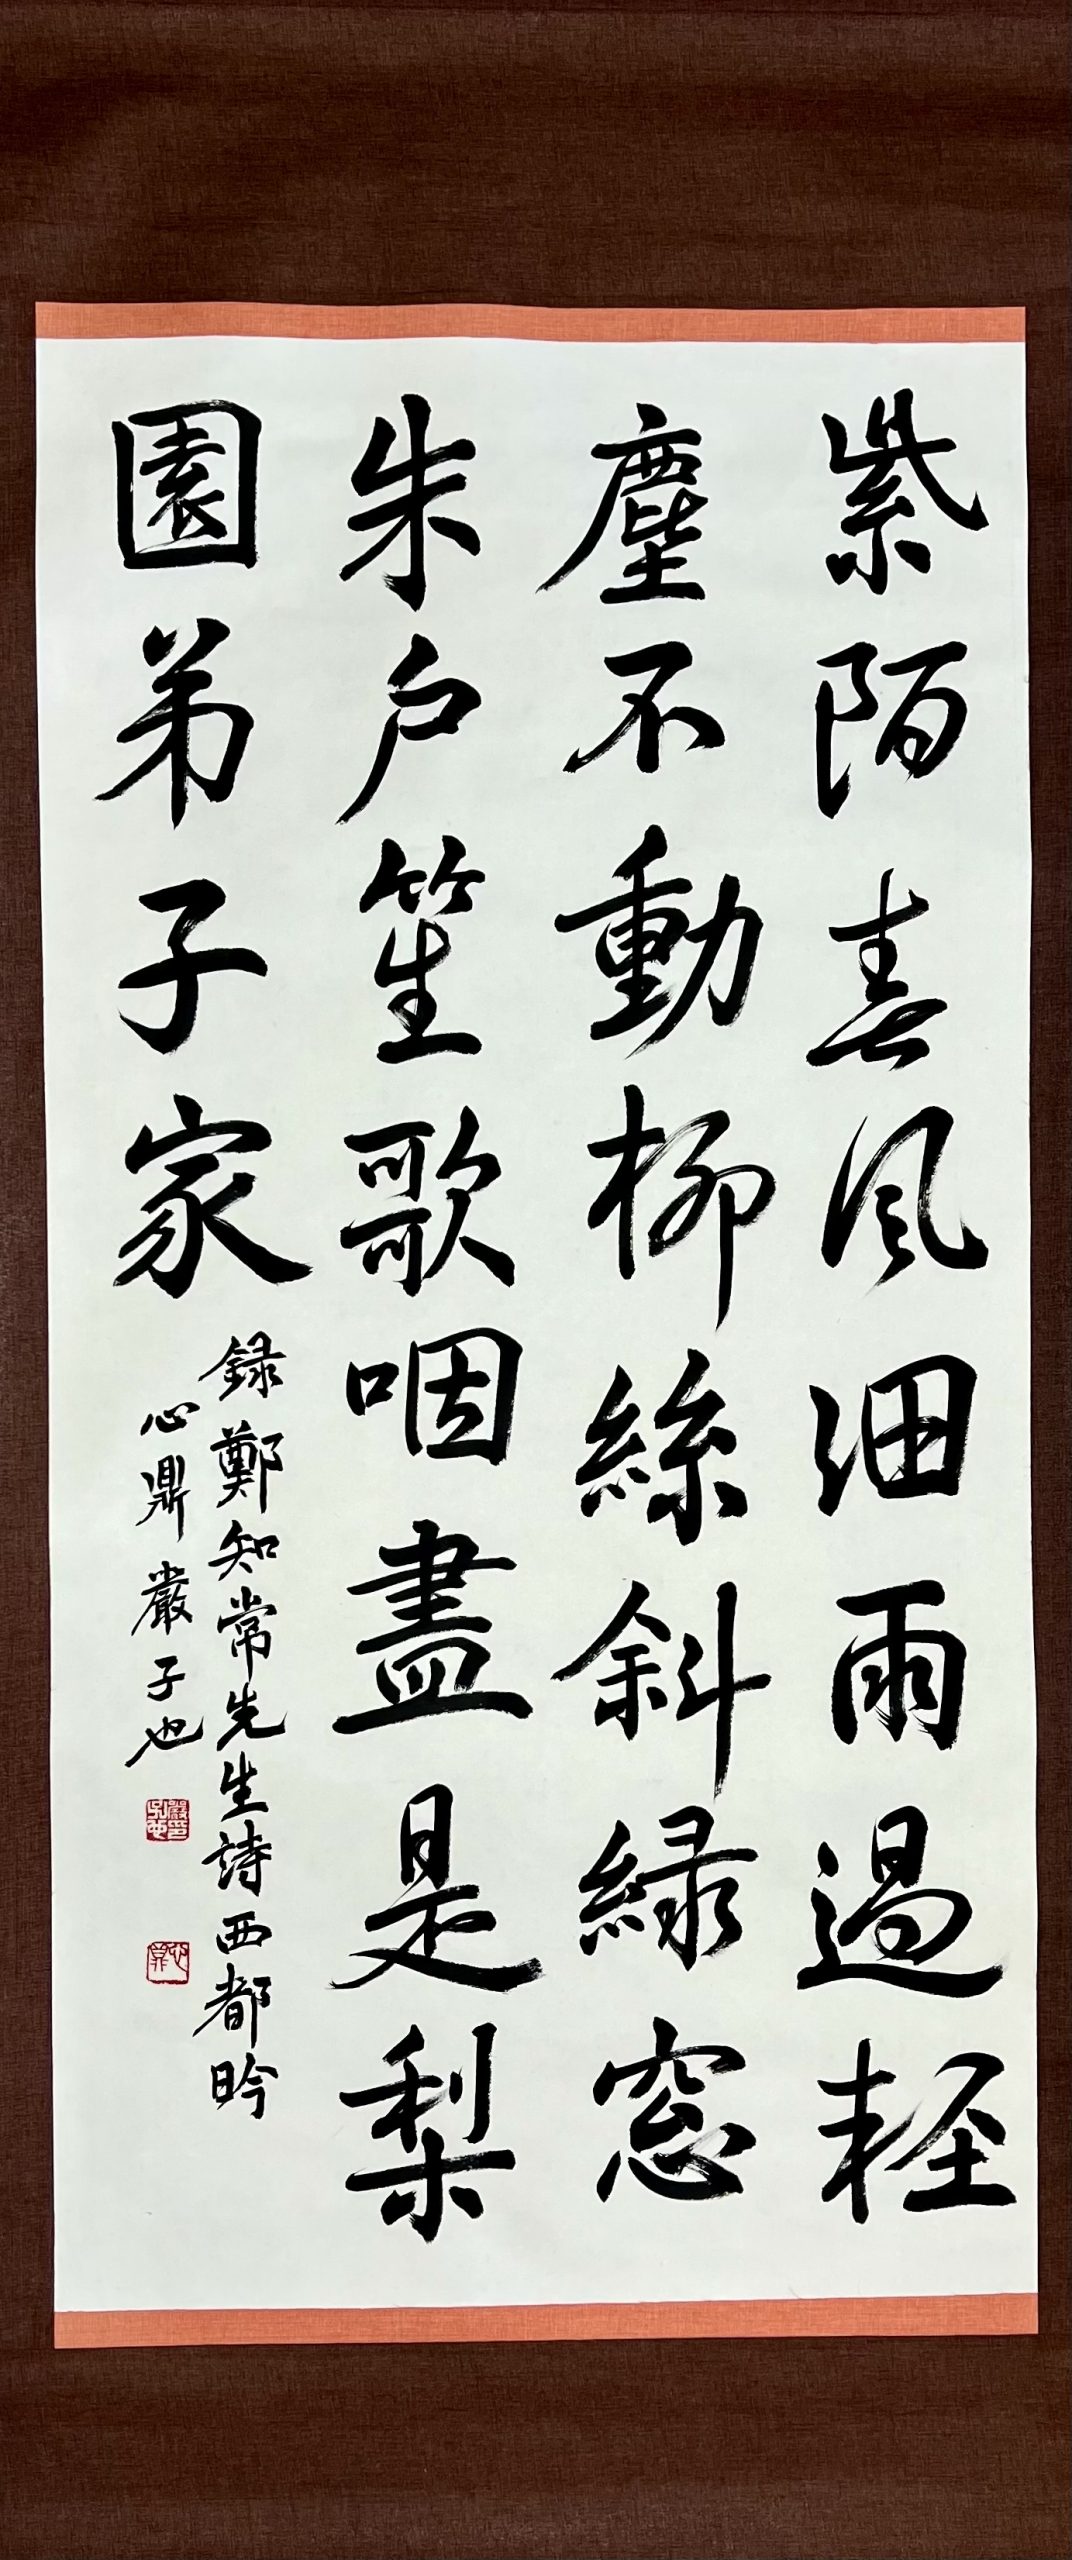 紫陌春風細雨過輕
塵不動柳絲斜綠窓
朱戶笙歌咽盡是梨
園弟子家
録鄭知常先生詩西都吟
心鼎嚴子也